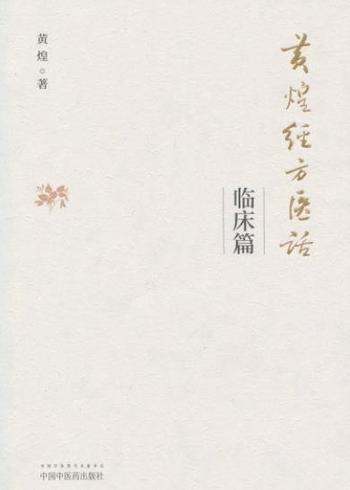 黄煌经方医话
临床篇
黄煌 著
中国中医药出版社